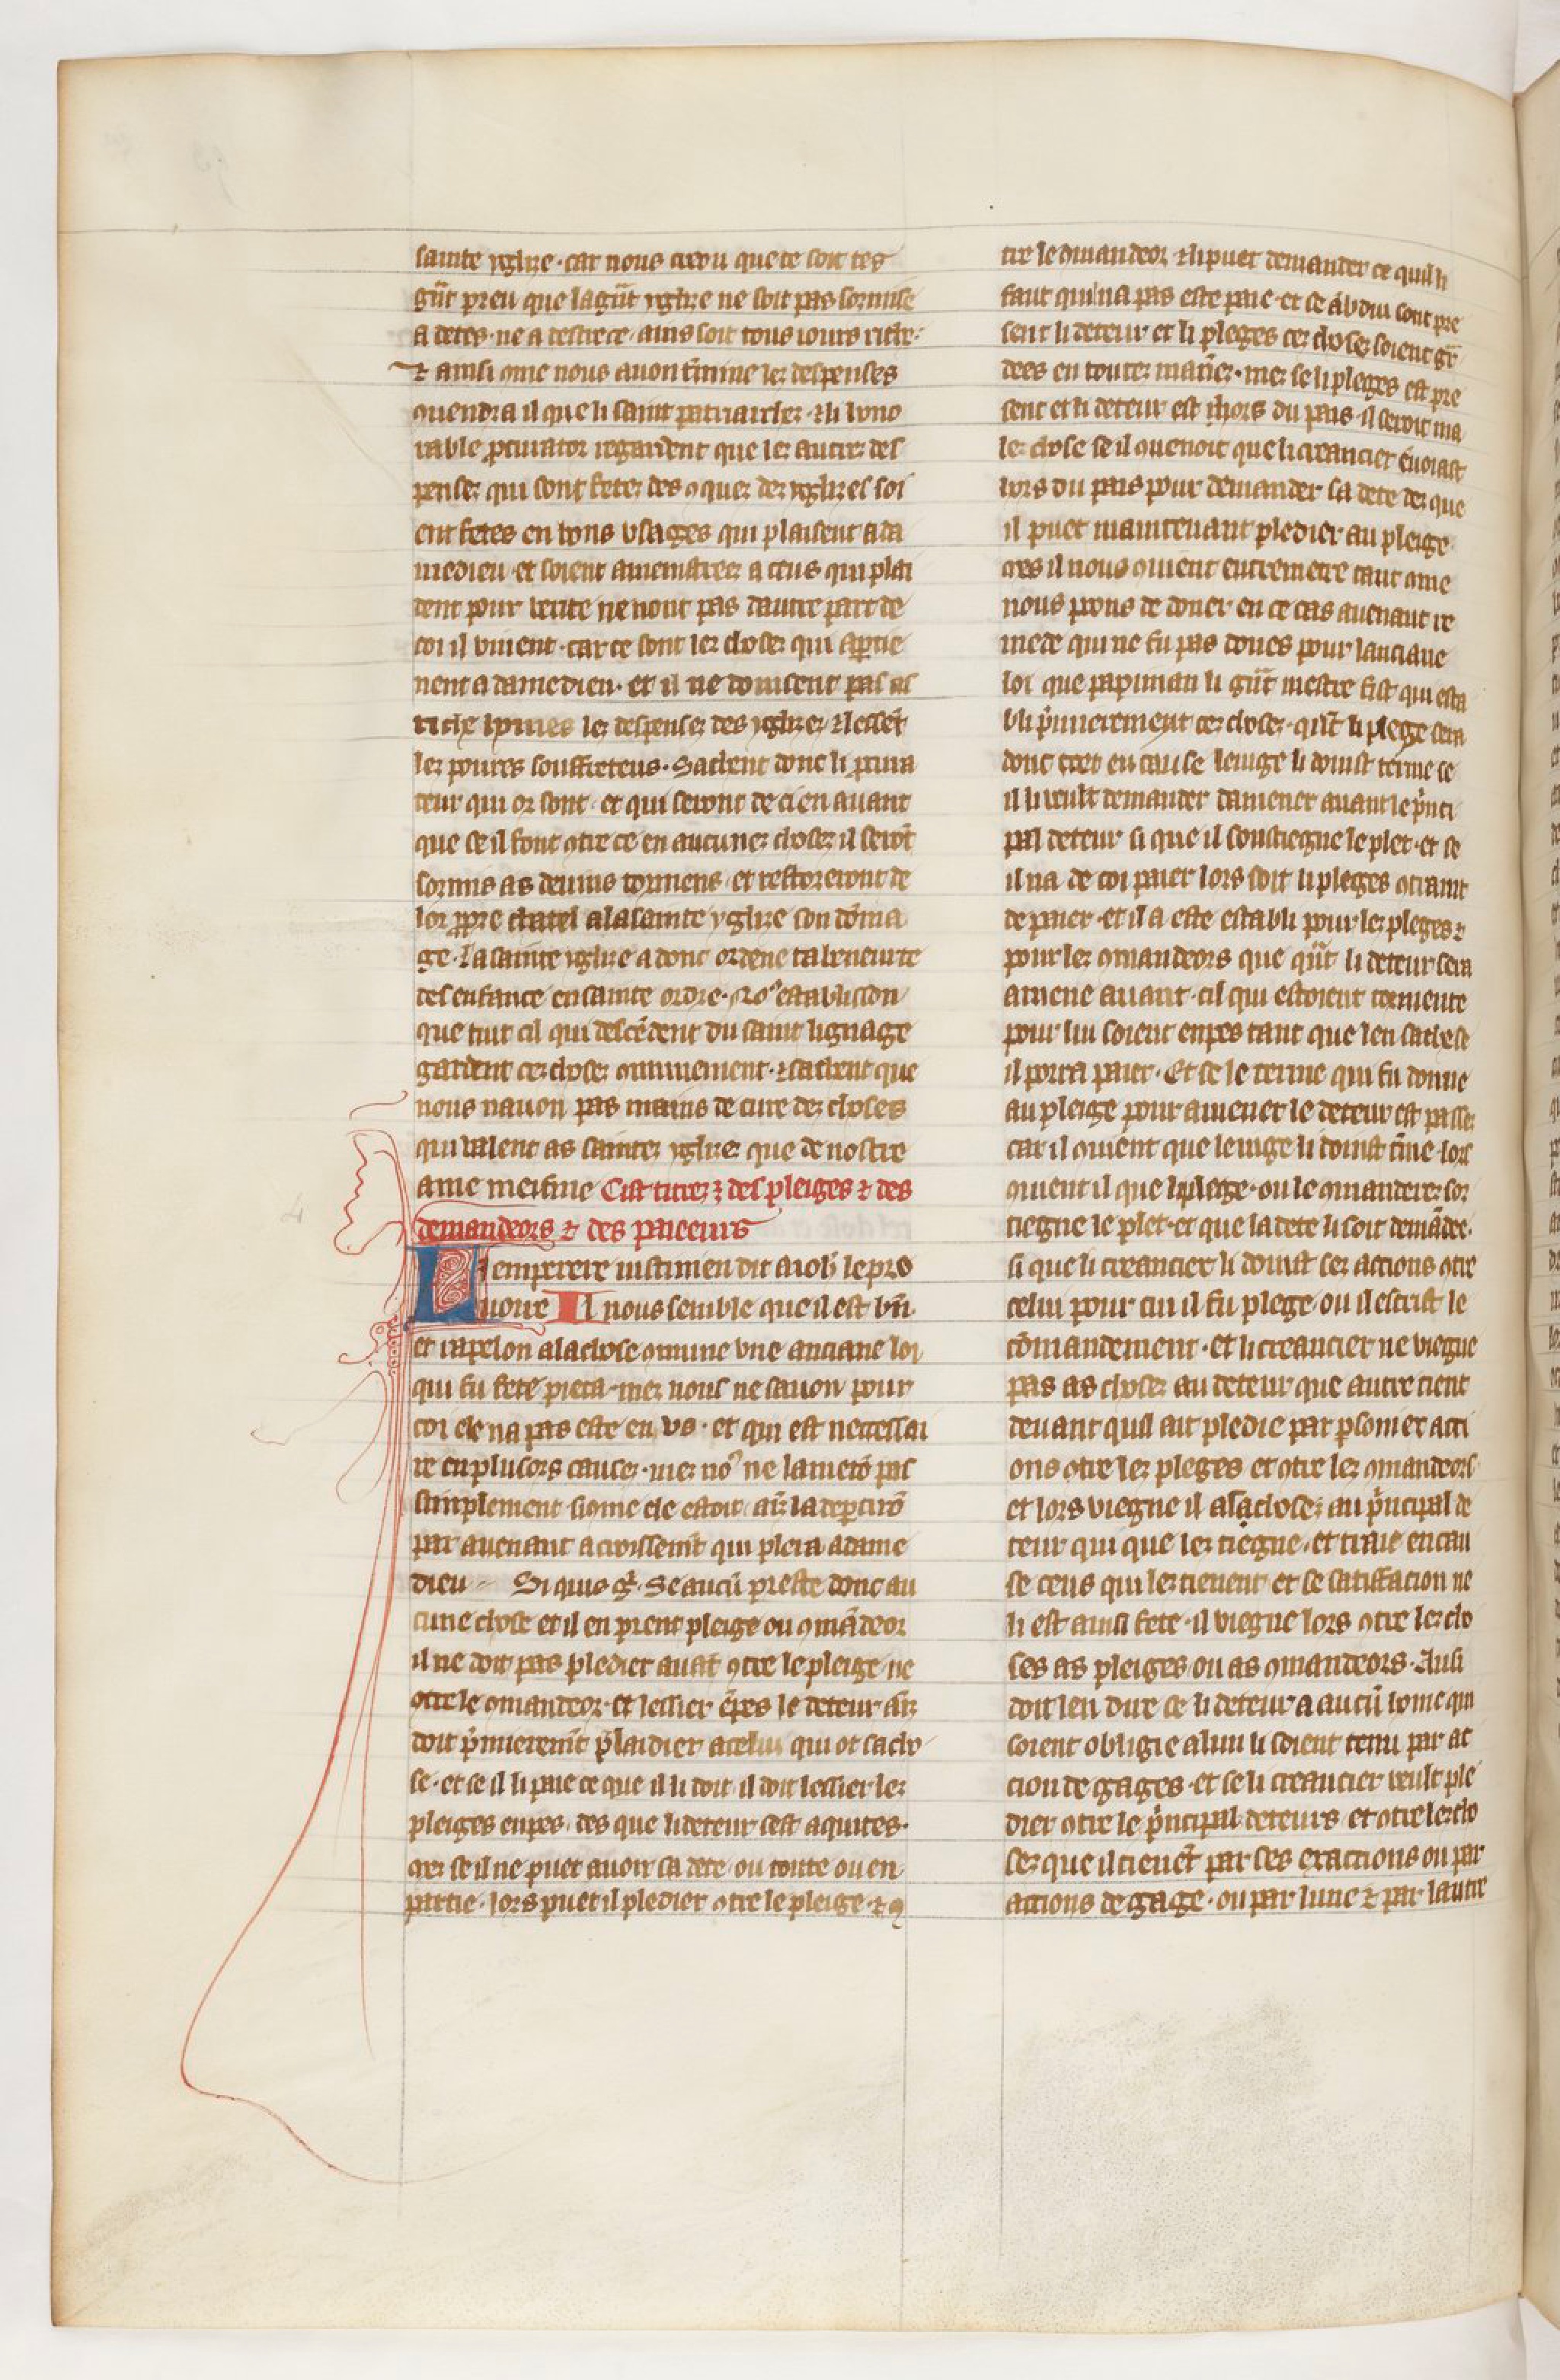 sainte yglise · car nous creõ u que ce soit tes
gñt preu que la gñt yglise ne soit pas sormise
a detes · ne a destrece · ains soit tous iours riche ·
⁊ ainsi ꝯme nous auon t̃mine lez despenses
ꝯuendra il que li saint patriarchez · ⁊ li hono
rable ꝓcurator regardent que lez autrez des
pensez qui sont fetez des eueques dez yglizes soi
ent fetes en bons vsages qui plaisent a da
medieu · et soient amenistrees a ceus qui plai
dent pour verite ne nont pas dautre part de
coi il viuent · car ce sont lez chosez qui aꝑtie
nent a damedieu · et il ne doiuent pas as
riche homes lez despensez des yglisez ⁊ lessẽt
lez poures souffreteus · Sachent donc li ꝓcura
teur qui or sont · et qui seront de ci en auant
que se il font ꝯtre ce en aucunez chosez il serõt
sormis as deuins tormens · et restoreront de
lor ꝓpre chatel a la sainte yglise son dõma
ge · la sainte yglise a donc ordene ta beneurte
des enfance en sainte ordre · Noꝰ establisson
que tuit cil qui descẽdent du saint lignage
gardent cez chosez ꝯmunement · ⁊ sachent que
nous nauon pas mains de cure dez choses
qui valent as saintez yglisez que de nostre
ame meisme Cist titrez ẽ des pleiges ⁊ des
demandeors ⁊ des paieeurs
Lemperere iustinien dit a ioh̃ le pro
uoire Il nous semble que il est bñ
et rapelon a la chose ꝯmune vne anciane loi
qui fu fete pieca · mez nous ne sauon pour
coi ele na pas este en vs · et qui est necessai
re en plusors causez · mez noꝰ ne la metõ pas
simplement si ꝯme ele estoit · aĩz la deꝑtirõ
par auenant acroissemẽt qui plera a dame
dieu Si quis g̃ · Se aucũ preste donc au
cune chose et il en prent pleige ou ꝯmãdeor
il ne doit pas pledier auãt ꝯtre le pleige ne
ꝯtre le ꝯmandeor · et lessier ẽpes le deteur aĩz
doit p̃mierem̃t p̃laidier a celui qui ot sa cho
se · et se il li paie ce que il li doit · il doit lessier lez
pleiges enpes · des que li deteur sest aquites ·
mez se il ne puet auoir sa dete · ou toute ou en
partie · lors puet il pledier ꝯtre le pleige · ⁊ ꝯ
tre le ꝯmandeor ⁊ li puet demander ce quil li
faut qui na pas este paie · et se ãbdui sont pre
sent li deteur et li pleges cez chosez soient gr̃
dees en toutez manierez · mez se li pleges est pre
sent et li deteur est ihors du pais · il seroit ma
le chose se il ꝯuenoit que li creancier ẽuoiast
hors du pais pour demander sa dete dez que
il puet maintenant pledier au pleige ·
mes il nous ꝯuient entremetre tant ꝯme
nous poons de doner en ce cas auenant re
mede qui ne fu pas dones pour lanciane
loi que papinian li gñt mestre fist qui esta
bli p̃mierement cez chosez · q̃nt li plege sera
donc trez en cause le iuge li doinst terme se
il li veult demander damener auant le p̃nci
pal deteur si que il soustiegne le plet · et se
il na de coi paier lors soit li pleges ꝯtraint
de paier · et il a este establi pour lez pleges ⁊
pour lez ꝯmandeors que q̃nt li deteur sera
amene auant · cil qui estoient tormente
pour lui soient enpes tant que len sache se
il porra paier · Et se le terme qui fu donne
au pleige pour amener le deteur est passez
car il ꝯuient que le iuge li doinst t̃me · lors
ꝯuient il que li plege · ou le ꝯmanderez sor
tiegne le plet · et que la dete li soit demãdee ·
si que li creancier li doinst sez actions ꝯtre
celui pour cui il fu plege · ou il escrist le
cõmandement · et li creancier ne viegne
pas as chosez au deteur que autre tient
deuant quil ait pledie par ꝑsonier acti
ons ꝯtre lez pleges et ꝯtre lez ꝯmandeors
et lors viegne il as chosez au p̃ncipal de
teur qui que lez tiegne · et traie en cau
se ceus qui lez tienent · et se satisfacion ne
li est ainsi fete · il viegne lors ꝯtre lez cho
ses as pleiges ou as ꝯmandeors · Ausi
doit len dire se li deteur a aucũ home qui
soient obligie a lui li soient tenu par ac
cion de gages · et se li creancier veult ple
dier ꝯtre le p̃ncipal deteurs · et ꝯtre lez cho
sez que il tienẽt par ses exactions ou par
actions de gage · ou par lune ⁊ par lautre